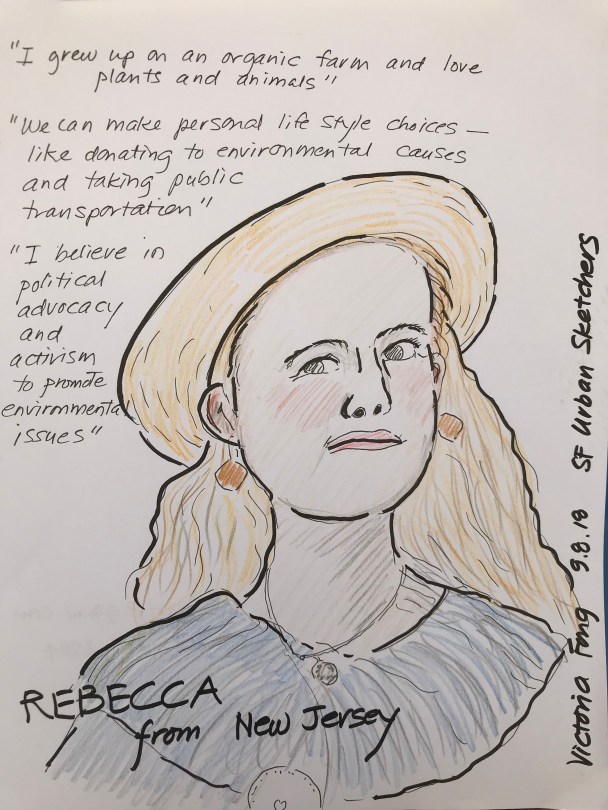 "I grew up on an organic farm and love
plants and animals"
"We can make personal life style choices —
like donating to environmental causes
and taking public
transportation"
"I believe in
political
advocacy
and
activism
to promote
environmental
issues"
REBECCA
from New Jersey
Victoria Fong 9.8.18 SF Urban Sketchers